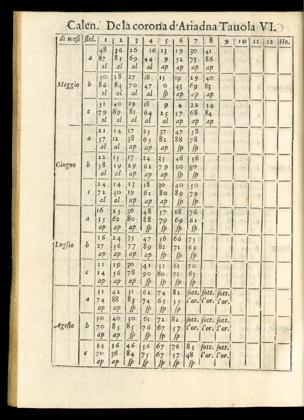 Calen. De la corona d'Ariadna Tauola VI.
di mesi stel. 1 2 3 4 5 6 7 8 9 10 11 12 Ho.
48 36 26 16 13 19 30 41
a 87 81 69 44 9 52 73 86
al al al al ap ap ap ap
50 38 27 18 15 19 29 40
Maggio b 86 84 70 47 0 43 69 83
al al al al sp ap ap ap
51 40 29 18 9 4 22 14
c 79 89 81 64 25 37 68 84
al al al al ap ap ap ap
21 14 17 25 37 47 58
a 57 12 38 65 82 88 78
al al ap ap ap ap sp
22 15 17 24 35 46 56
Giugno b 58 19 29 62 79 90 30
al al ap ap ap sp sp
24 14 13 18 30 40 50
c 72 40 19 61 80 89 79
al al ap ap ap ap sp
16 25 36 48 57 68 76
a 55 62 80 88 79 69 61
ap ap ap ap sp sp sp
16 24 35 47 56 66 75
Luglio b 27 56 77 89 81 71 63
ap ap ap ap sp sp sp
11 19 30 41 51 61 70
c 14 56 78 90 80 71 63
ap ap ap sp sp sp sp
31 42 51 62 74 82 sott. sott.
a 74 88 83 74 65 55 l'or. l'or.
ap ap sp sp sp sp
50 40 50 61 72 82 sott. sott.
Agosto b 70 85 85 76 67 57 l'or. l'or.
ap ap sp sp sp sp
34 36 46 56 67 76 85 sott.
c 70 36 84 75 67 57 48 l'or.
ap ap sp sp sp sp sp